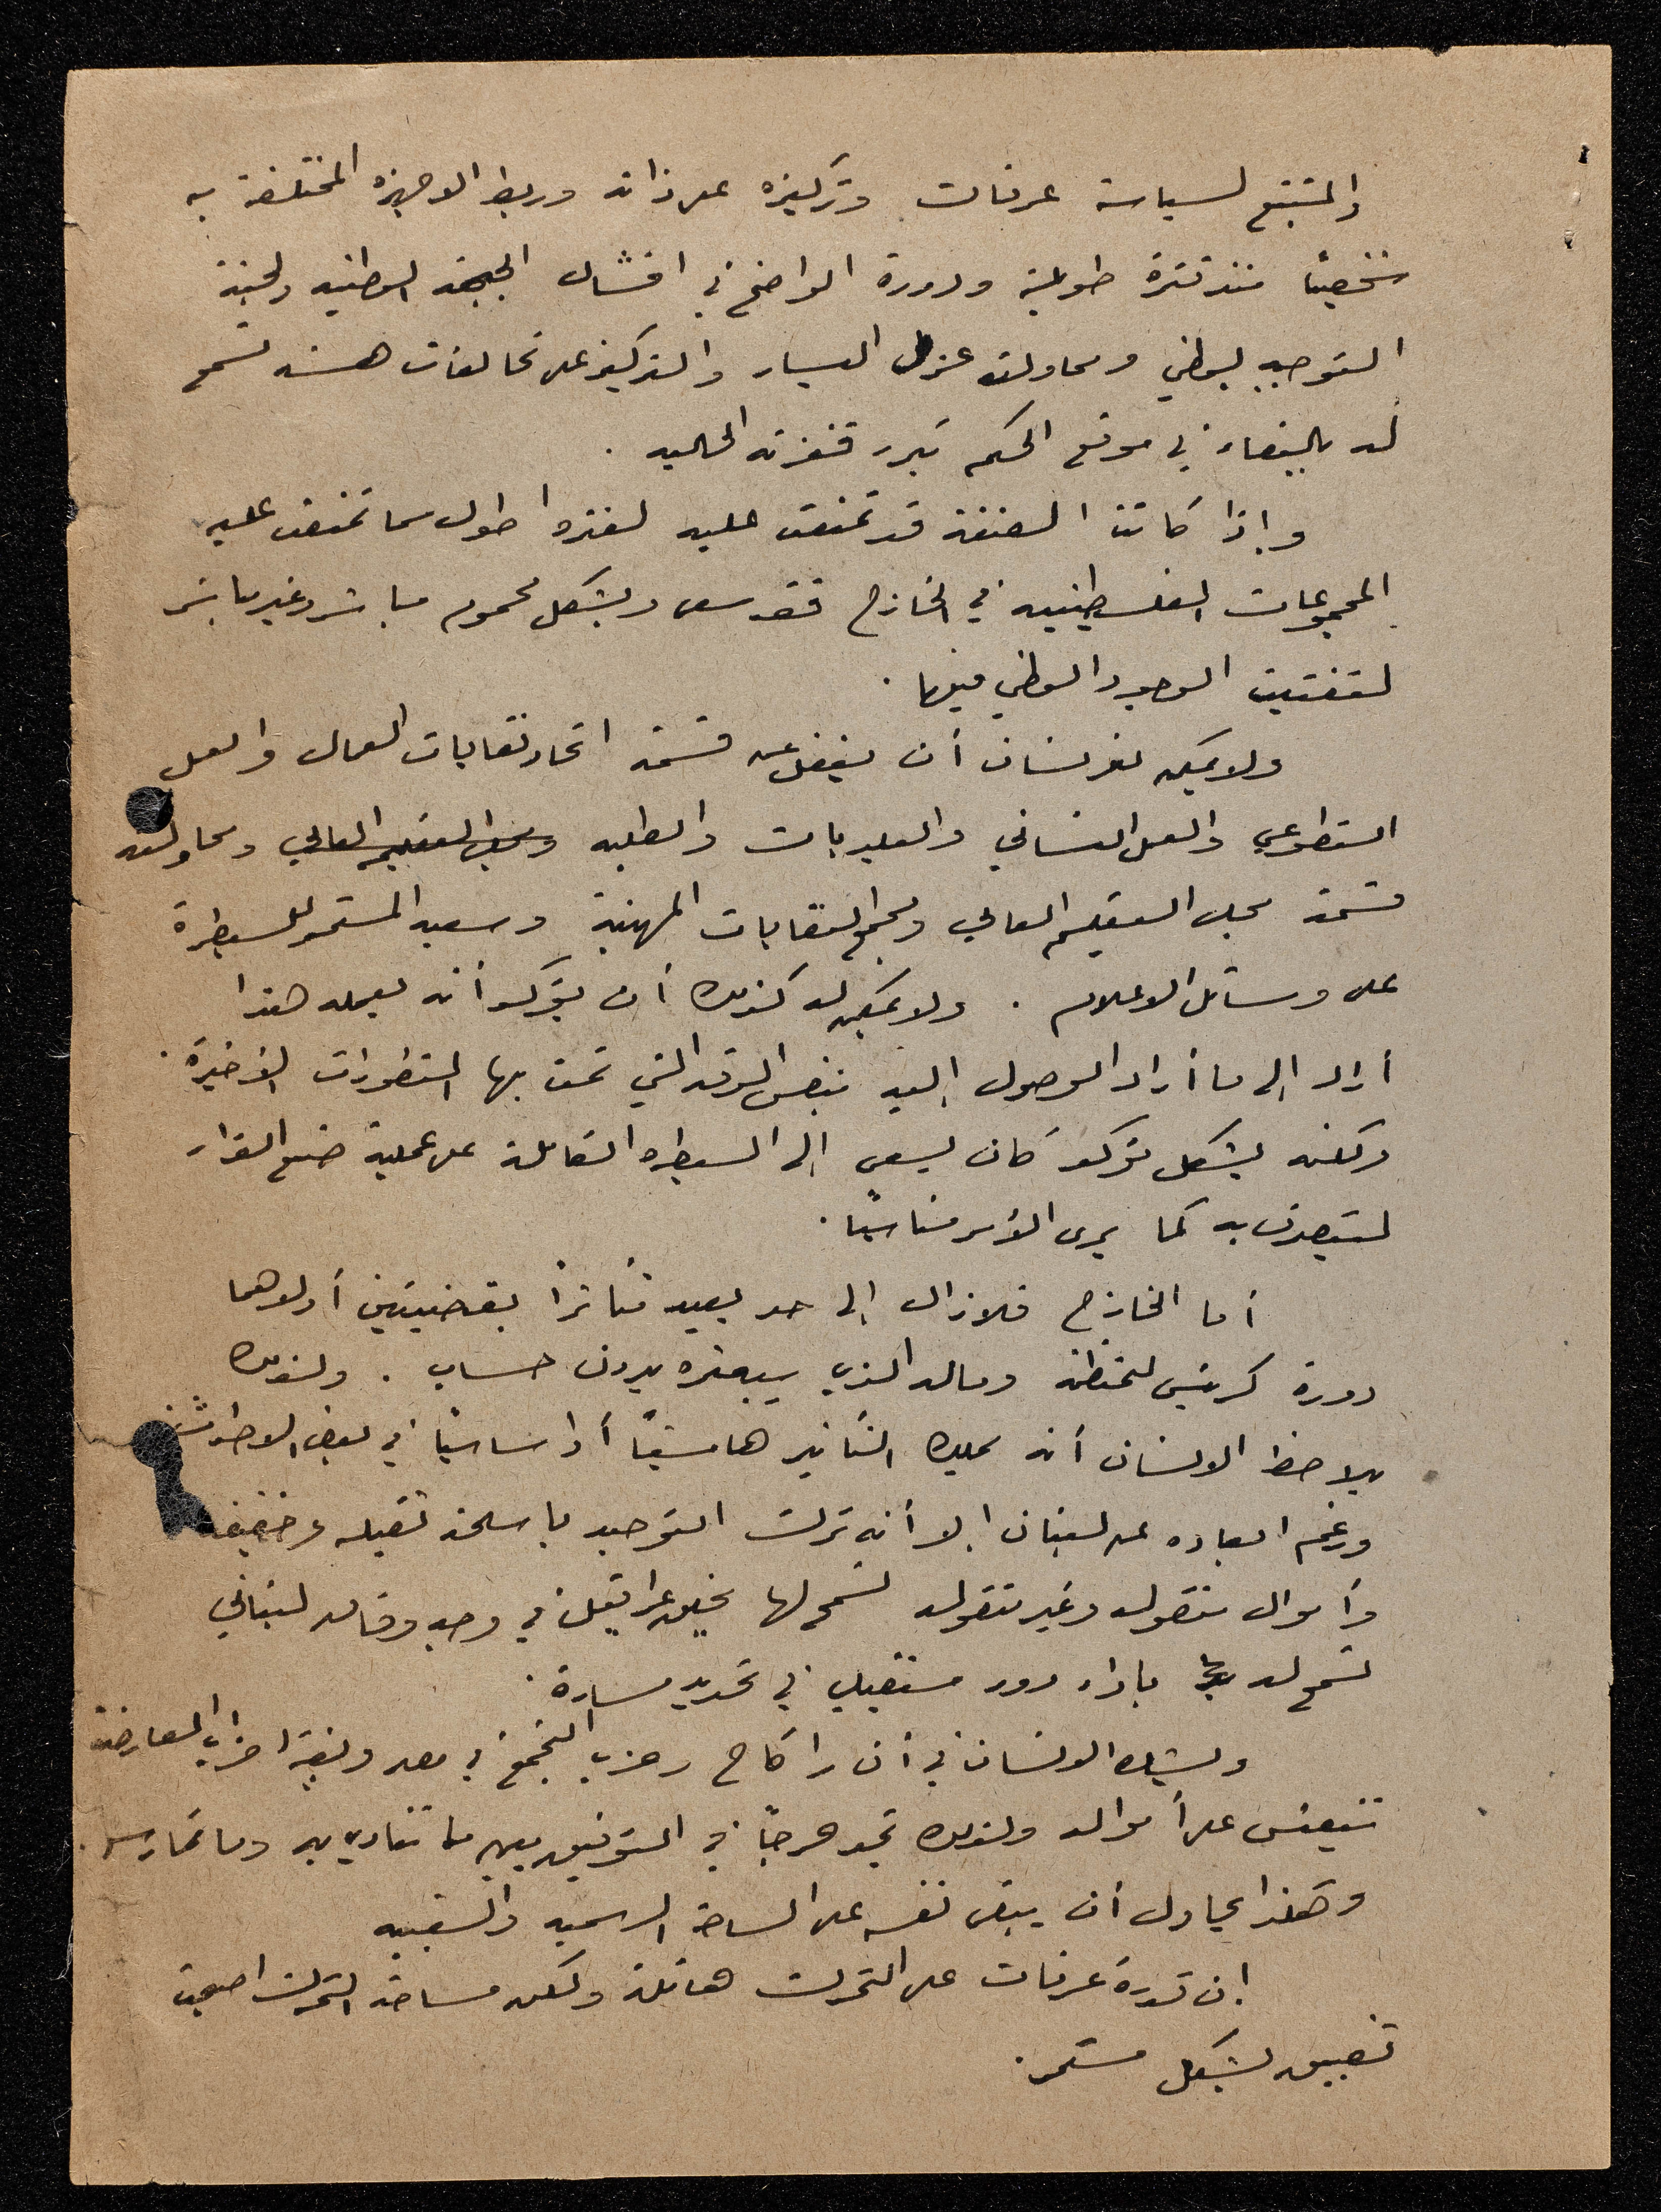 والمتتبع لسياسة عرفات وتركيزه على ذاته وربط الاجهزه المختلفة به
شخصياً منذ فترة طويلة ودورة الواضح في افشال الجبهة الوطنيه ولجنة
التوجيه الوطني ومحاولته عزل اليسار والتركيز على تحالفات هشه تسمح
له بالبقاء في موقع الحكم تبرر قفزته الحاليه .
واذا كانت الضفة قد تمنعت عليه لفتره اطول مما تمنعت عليه
المجموعات الفلسطينيه في الخارج فقد سعى وبشكل محموم مباشر وغير مباشر
لتفتيت الوجود الوطني فيها .
ولا يمكن لإنسان أن يغفل عن قسمة اتحاد نقابات العمال والعمل
التطوعي والعمل النسائي والبلديات والطلبه ومجلس التعليم العالي ومحاولته
قسمة مجلس التعليم العالي ومجمع النقابات المهنية وسعيه المستمر للسيطرة
على وسائل الاعلام . ولا يمكن له كذلك أن يؤكد أنه بعمله هذا
أراد الى ما أراد الوصول اليه بنفس الدقه التي تمت بها التطورات الأخيرة .
ولكنه بشكل مؤكد كان يسعى الى السيطره الكاملة على عملية صنع القرار
ليتصرف به كما يرى الأمر مناسباً .
أما الخارج فلا زال الى حد بعيد متأثراً بقضيتين أولاهما
دورة كرئيس للمنظمة وماله الذي يبعثره بدون حساب . ولذلك
يلاحظ الانسان أنه يملك التأثير هامشياً أو اساسياً في بعض الاطراف
ورغم ابعاده عن لبنان الا أنه ترك التوحيد باسلحة ثقيله وخفيفه
وأموال منقوله وغير منقوله تسمح لها بخلق عراقيل في وجه وفاق لبناني
تسمح له باداء دور مستقبلي في تحديد مسارة .
ويشك الانسان في أن راكاح وحزب التجمع في مصر وبقية احزاب المعارضة
تتعيش على أمواله ولذلك تجد حرجاً في التوفيق بين ما تنادي به وما تمارس .
وهكذا يحاول أن يبقى نفسه على الساحة الرسميه والشعبيه
ان قدرة عرفات على التحرك هائلة ولكن مساحة التحرك اصبحت
تضيق بشكل مستمر .